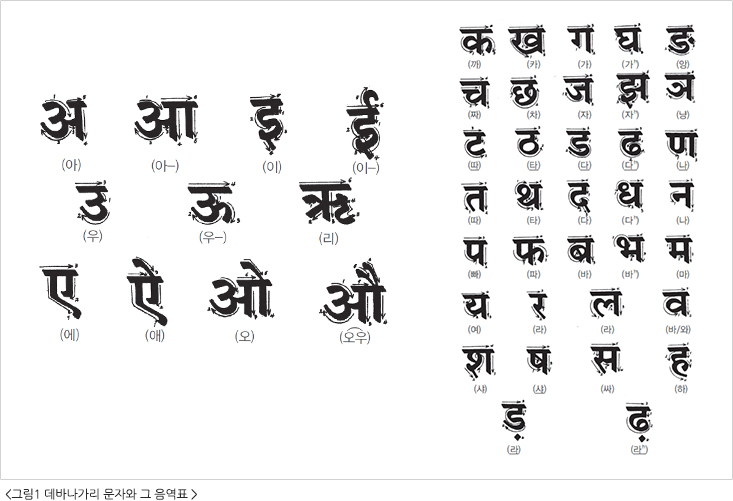 अ आ इ ई
(아) (아–) (이) (이–)
उ ऊ ऋ
(우) (우–) (리)
ए ऐ ओ औ
(에) (애) (오) (오우)
क ख ग घ ङ
(까) (카) (가) (가ʰ) (앙)
च छ ज झ ञ
(짜) (차) (자) (자ʰ) (냥)
ट ठ ड ढ ण
(따) (타) (다) (다ʰ) (나)
त थ द ध न
(따) (타) (다) (다ʰ) (나)
प फ ब भ म
(빠) (파) (바) (바ʰ) (마)
य र ल व
(여) (라) (라) (바/와)
श ष स ह
(샤) (샤) (싸) (하)
ड़ ढ़
(라) (라ʰ)
<그림1 데바나가리 문자와 그 음역표 >